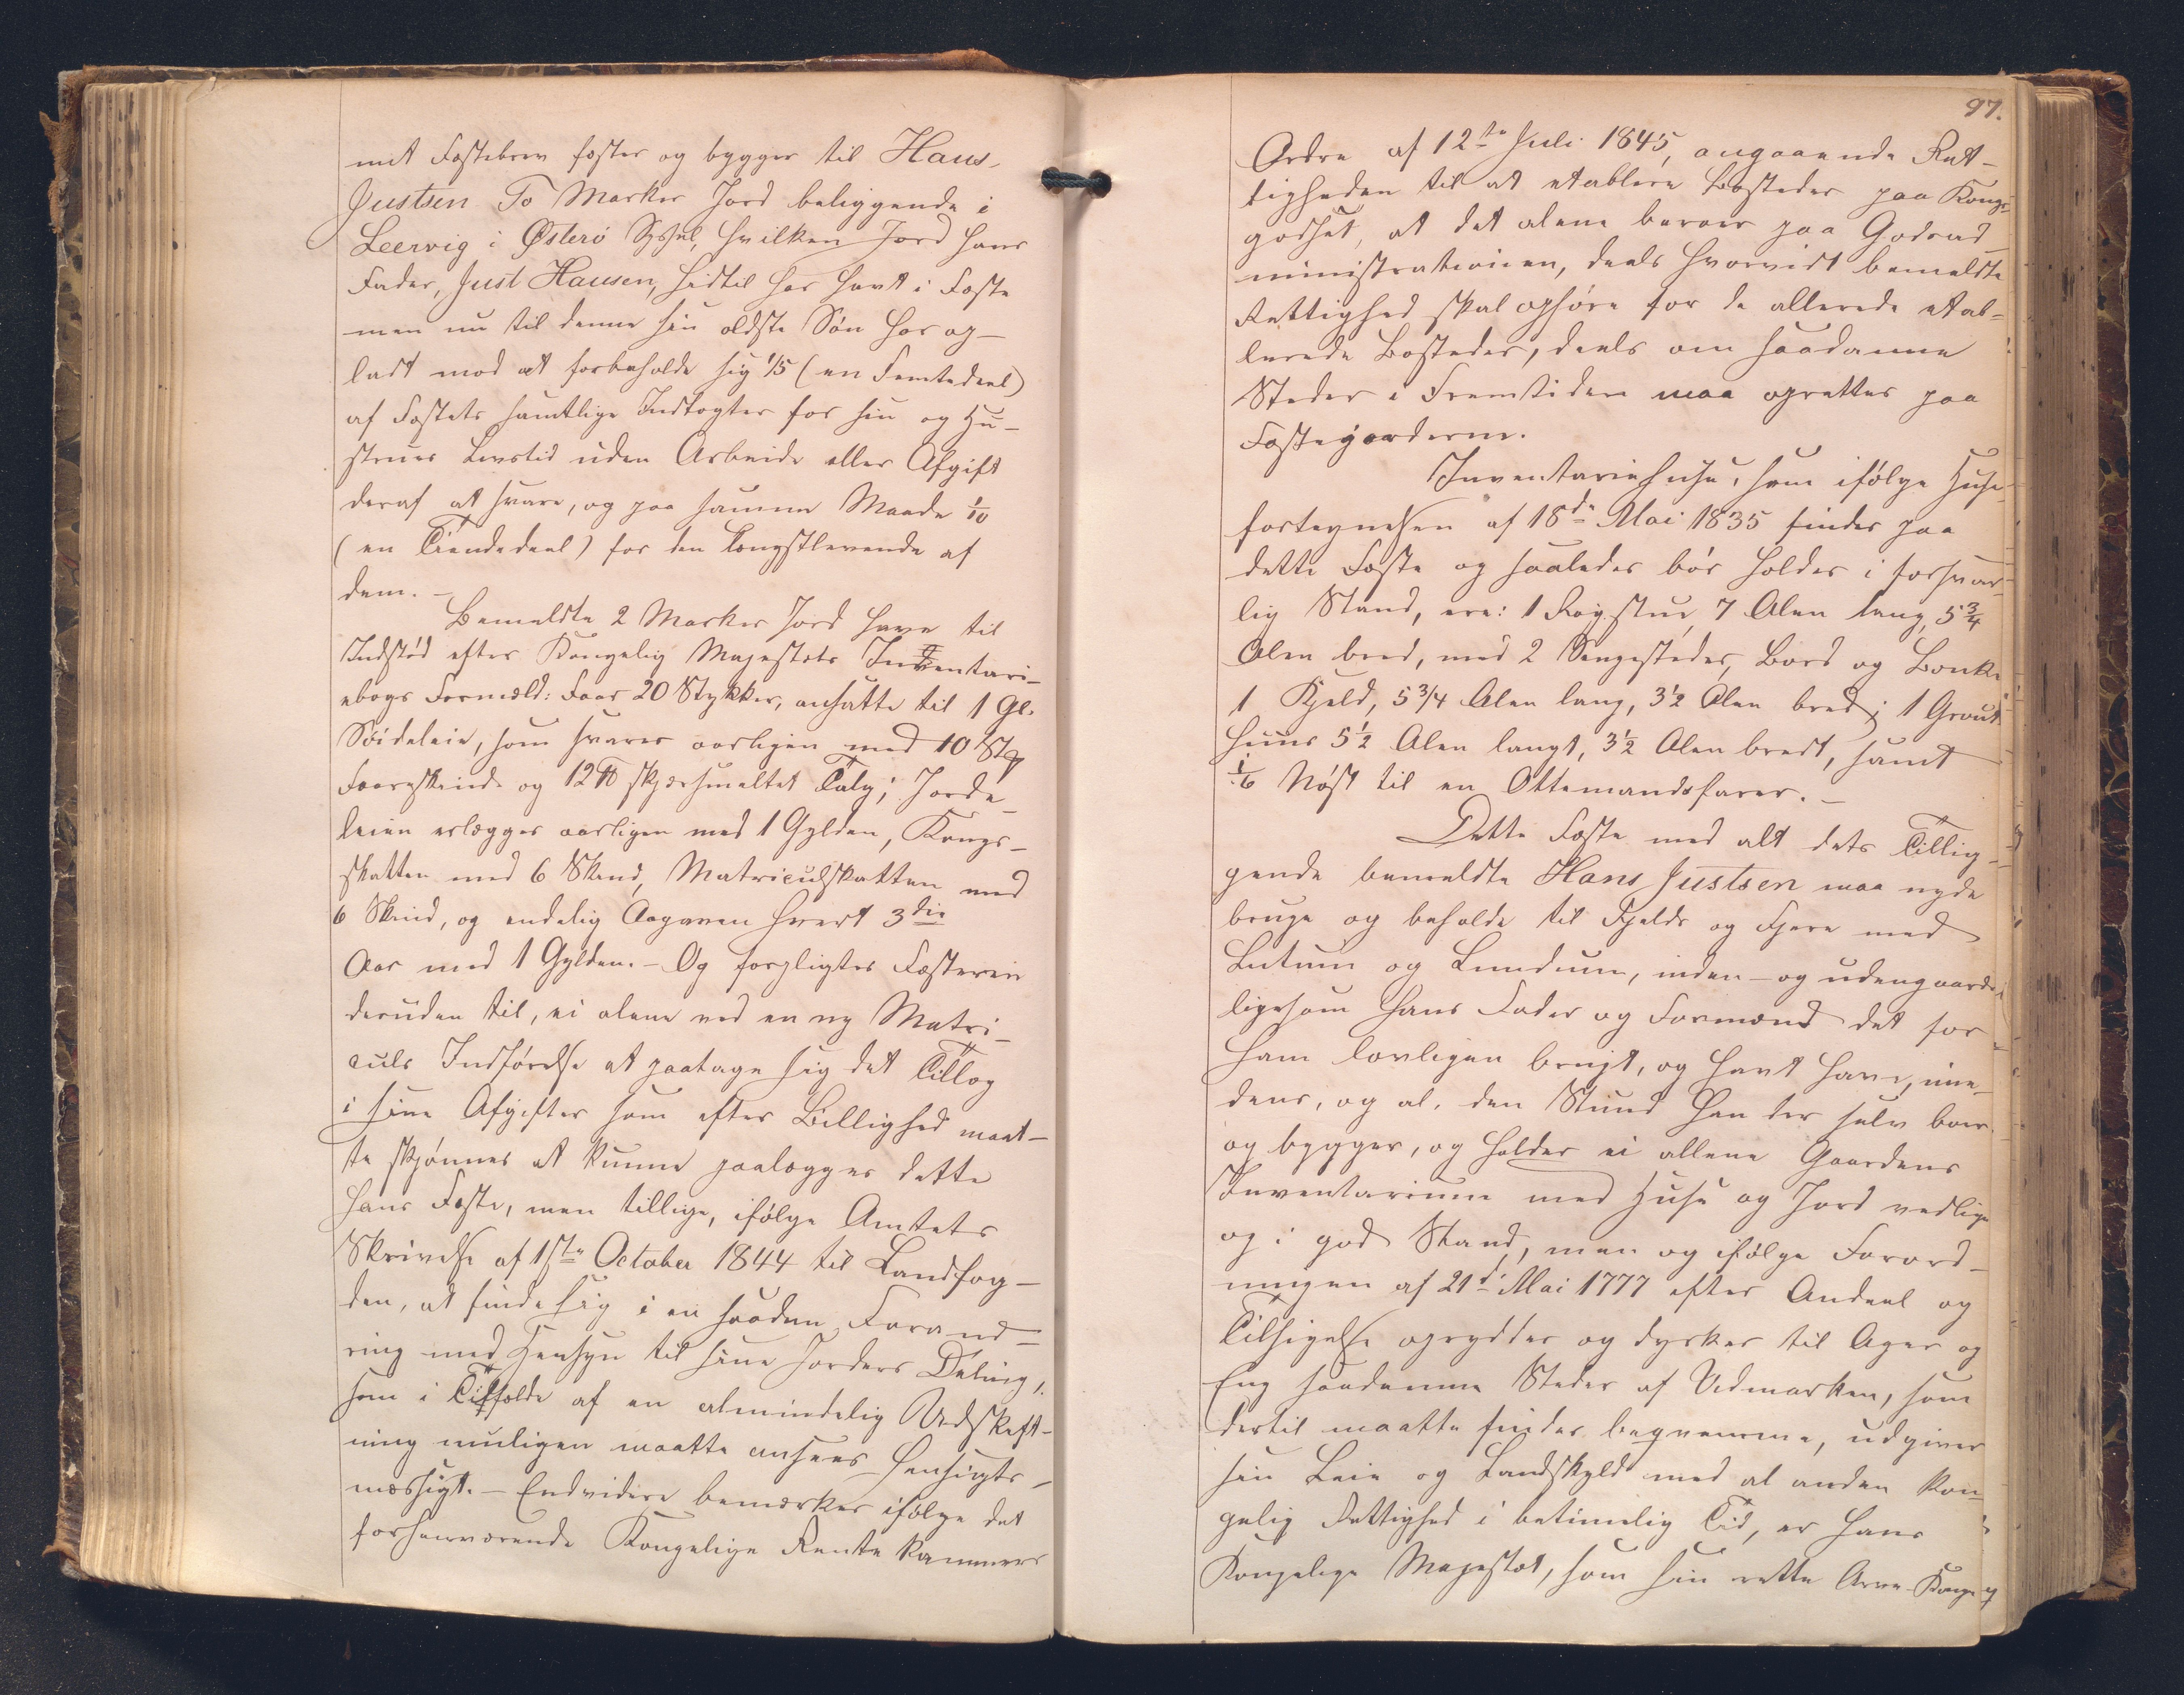 mit Fæstebrev fæster og bygger til Hans
Justsen To Marker Jord beliggende i
Leervig i Østerö Syssel, hvilken Jord hans
Fader, Just Hansen, hidtil har havt i Fæste
men nu til denne sin ældste Søn har op-
ladt mod at forbeholde sig 1/5 (en Femtedeel)
af Fæstets samtlige Indtægter for sin og Hu-
strues Levetid uden Arbeide eller Afgift
deraf at svare, og paa samme Maade 1/10
(en Tiendedeel) for den Længstlevende af
dem. -
Bemeldte 2 Marker Jord have til
Indstöd efter Kongelig Majestæts Inventari-
ebogs Formæld: Faar 20 Stykker, ansatte til 1 Gl.
Söideleie, som svares aarligen med 10 Stk
Faareskind og 12 ℔ skjærsmeltet Talg; Jorde-
leien erlægges aarligen med 1 Gylden, Kongs-
skatten med 6 Skind, Matriculskatten med
6 Skind, og endelig Aagaven hvert 3die
Aar med 1 Gylden. - Og forpligtes Fæsteren
desuden til, ei alene ved en ny Matri-
culs Indförelse at paatage sig det Tillæg
i sine Afgifter som efter Billighed maat-
te skjönnes at kunne paalægges dette
hans Fæste, men tillige, ifölge Amtets
Skrivelse af 1ste October 1844 til Landfog-
den, at finde sig i en saadan Forand-
ring med Hensyn til sine Jorders Deling,
som i Tilfælde af en almindelig Udskift-
ning muligen maatte ansees hensigts-
mæssigt. - Endvidere bemærkes ifölge det
forhenværende Kongelige Rentekammers
97.
Ordre af 12te Juli 1845, angaaende Ret-
tigheden til at etablere Bosteder paa Kongs-
godset, at det alene beroer paa Godsad-
ministrationen, deels hvorvidt bemeldte
Rettighed skal ophöre for de allerede etab-
lerede Bosteder, deels om saadanne
Steder i Fremtiden maa oprettes paa
Fæstegaarderne.
Inventariehuse, som ifölge Huse-
fortegnelsen af 18de Mai 1835 findes paa
dette Fæste og saaledes bör holdes i forsvar-
lig Stand, ere: 1 Rögstue, 7 Alen lang, 5 3/4
Alen bred, med 2 Sengesteder, Bord og Bænke
1 Kjeld, 5 3/4 Alen lang, 3 1/2 Alen bred; 1 Grout-
huus 5 1/2 Alen langt, 3 1/2 Alen bredt, samt
1/6 Nöst til en Ottemandsfarer. -
Dette Fæste med alt dets Tillig-
gende bemeldte Hans Justsen maa nyde
bruge og beholde til Fjelds og Fjere med
Lutum og Lundum, inden- og udengaards,
ligesom hans Fader og Formænd det for
ham lovligen brugt, og havt have, ime-
dens, og al den Stund han der selv boer
og bygger, og holder ei allene Gaardens
Inventarium med Huse og Jord vedlige
og i god Stand, men og ifölge Forord-
ningen af 21de Mai 1777 efter Andeel og
Tilsigelse oprydder og dyrker til Ager og
Eng saadanne Steder af Udmarken, som
dertil maatte findes beqvemme, udgiver
sin Leie og Landskyld med al anden Kon-
gelig Rettighed i betimelig Tid, er Hans
Kongelige Majestæt, som sin rette Arve-Konge og